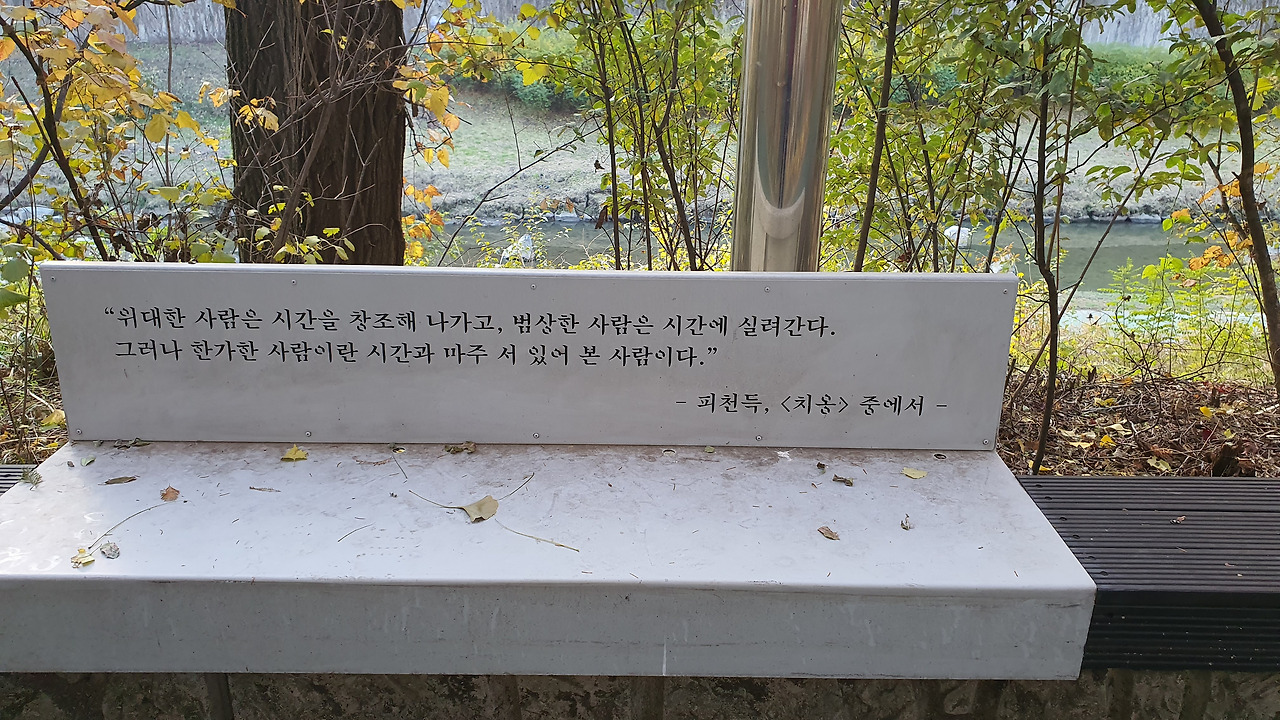 “위대한 사람은 시간을 창조해 나가고, 범상한 사람은 시간에 실려간다.
그러나 한가한 사람이란 시간과 마주 서 있어 본 사람이다.”
- 피천득, <치옹> 중에서 -